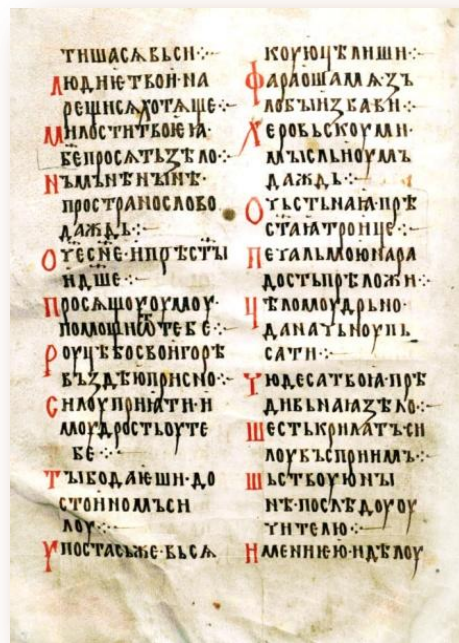 тишасѧ вьси·:·
людиѥ твои·на
рещи сѧ хотѧще·:·
милости твоѥꙗ·
бе просѧть ꙁѣло·
нъ мънѣ нынѣ·
пространо слово
даждь·:·
Оч҃е с҃не·и прѣст҃ы
и д҃ше·:·
просѧщоуоумоу·
помощи ѿ тебе·:·
Роуцѣ бо свои горѣ
въꙁдѣю присно·:·
Силоу приꙗти·и
моудрость оу те
бе·:·
Ты бо даѥши·до
стоиномъ си
лоу·:·
Упостась же·вьсѧ
коую цѣлиши·:·
Фараоша мѧ ꙁъ
лобы иꙁбави·:·
Херовьскоу ми·
мысль и оумъ
даждь·:·
О чьстьнаꙗ·прѣ
с҃таꙗ троице·:·
Печаль мою на ра
дость прѣложи·:·
Цѣломоудрьно·
да начьноу пь
сати·:·
Чюдеса твоꙗ·прѣ
дивьнаꙗ ꙁѣло·:·
Шесть крилатъ си
лоу въсприимъ·:·
Шьствоую ны
нѣ·по слѣдоу оу
чителю·:·
Имени ѥю·и дѣлоу